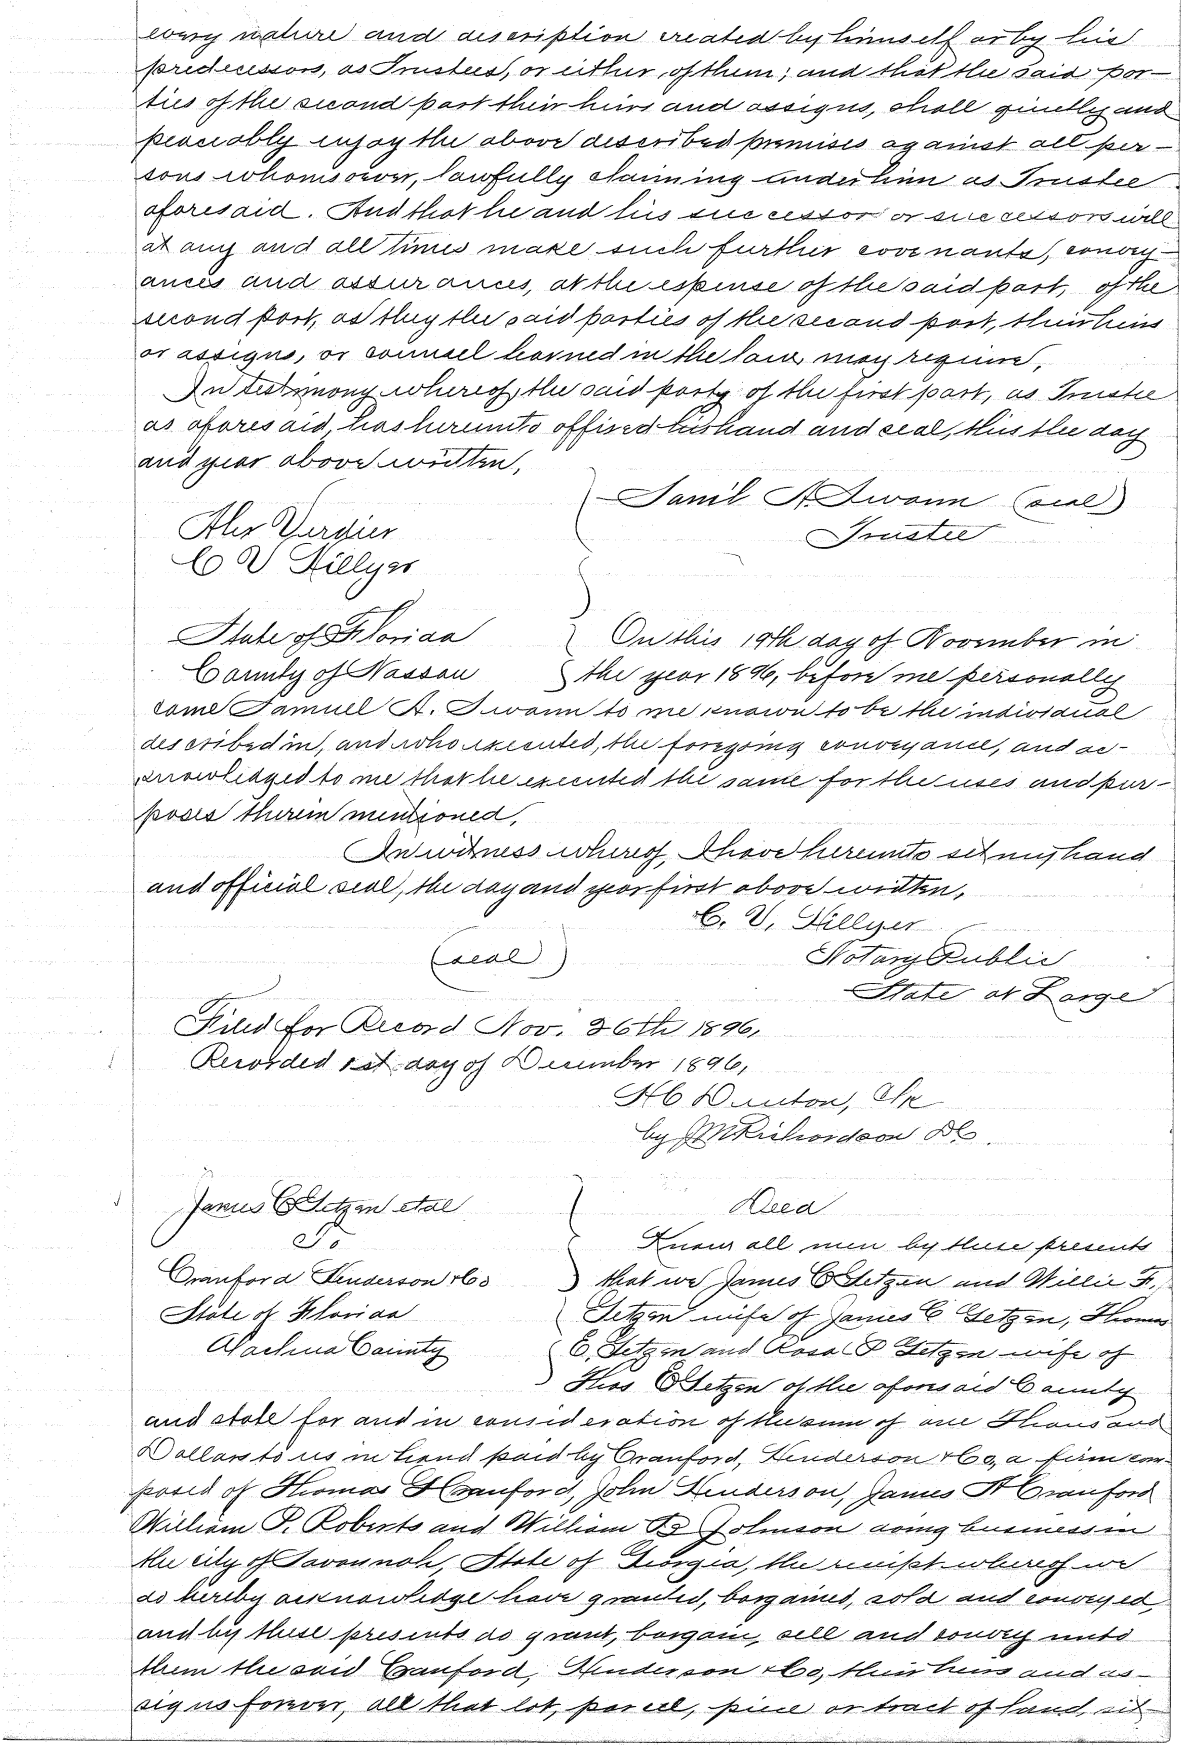 every nature and description created by himself or by his
predecessors, as Trustees, or either of them; and that the said par-
ties of the second part their heirs and assigns, shall quietly and
peaceably enjoy the above described premises against all per-
sons whomsoever, lawfully claiming under him as Trustee
aforesaid. And that he and his successor or successors will
at any and all times make such further covenants, convey-
ances and assurances, at the expense of the said part, of the
second part, as they the said parties of the second part, their heirs
or assigns, or counsel learned in the law, may require,
In testimony whereof, the said party of the first part, as Trustee
as aforesaid, has hereunto affixed his hand and seal, this the day
and year above written,
Saml A. Swann (seal)
Trustee
Alex Verdier
C V Hillyer
State of Florida
County of Nassau
On this 19th day of November in
the year 1896, before me personally
came Samuel A. Swann to me known to be the individual
described in, and who executed, the foregoing conveyance, and ac-
knowledged to me that he executed the same for the uses and pur-
poses therein mentioned,
In witness whereof, I have hereunto set my hand
and official seal, the day and year first above written,
C. V. Hillyer
(seal) Notary Public
State at Large
Filed for Record Nov. 26th 1896,
Recorded 1st day of December 1896,
H C Denton, Clk
by J M Richardson DC.
James C Getzen etal
To
Cranford Henderson & Co
State of Florida
Alachua County
Deed
Know all men by these presents
that we James C Getzen and Willie F.,
Getzen wife of James C Getzen, Thomas
E. Getzen and Rosa P Getzen wife of
Thos E Getzen of the aforesaid County
and state for and in consideration of the sum of one Thousand
Dollars to us in hand paid by Cranford, Henderson & Co, a firm com-
posed of Thomas H Cranford, John Henderson, James A Cranford
William P. Roberts and William B Johnson doing business in
the city of Savannah, State of Georgia, the receipt whereof we
do hereby acknowledge have granted, bargained, sold and conveyed,
and by these presents do grant, bargain, sell and convey unto
them the said Cranford, Henderson & Co, their heirs and as-
signs forever, all that lot, parcel, piece or tract of land, sit-